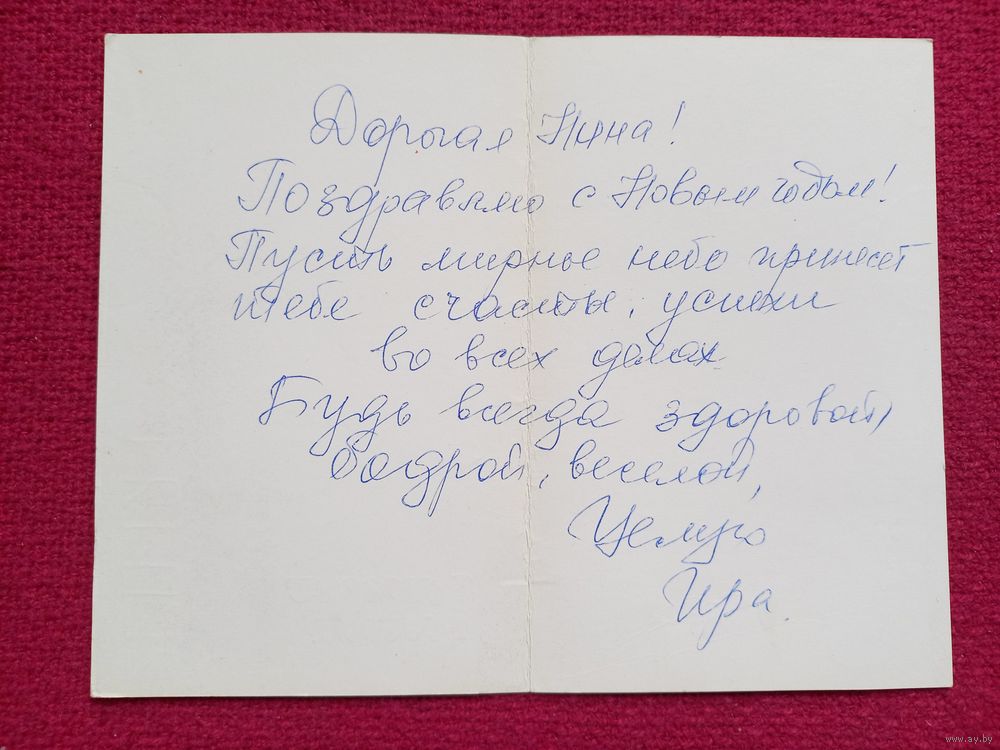 Дорогая Нина!
Поздравляю с Новым годом!
Пусть мирное небо принесет
тебе счастье, успехи
во всех делах
Будь всегда здоровой,
бодрой, веселой,
Целую
Ира.
www.ay.by